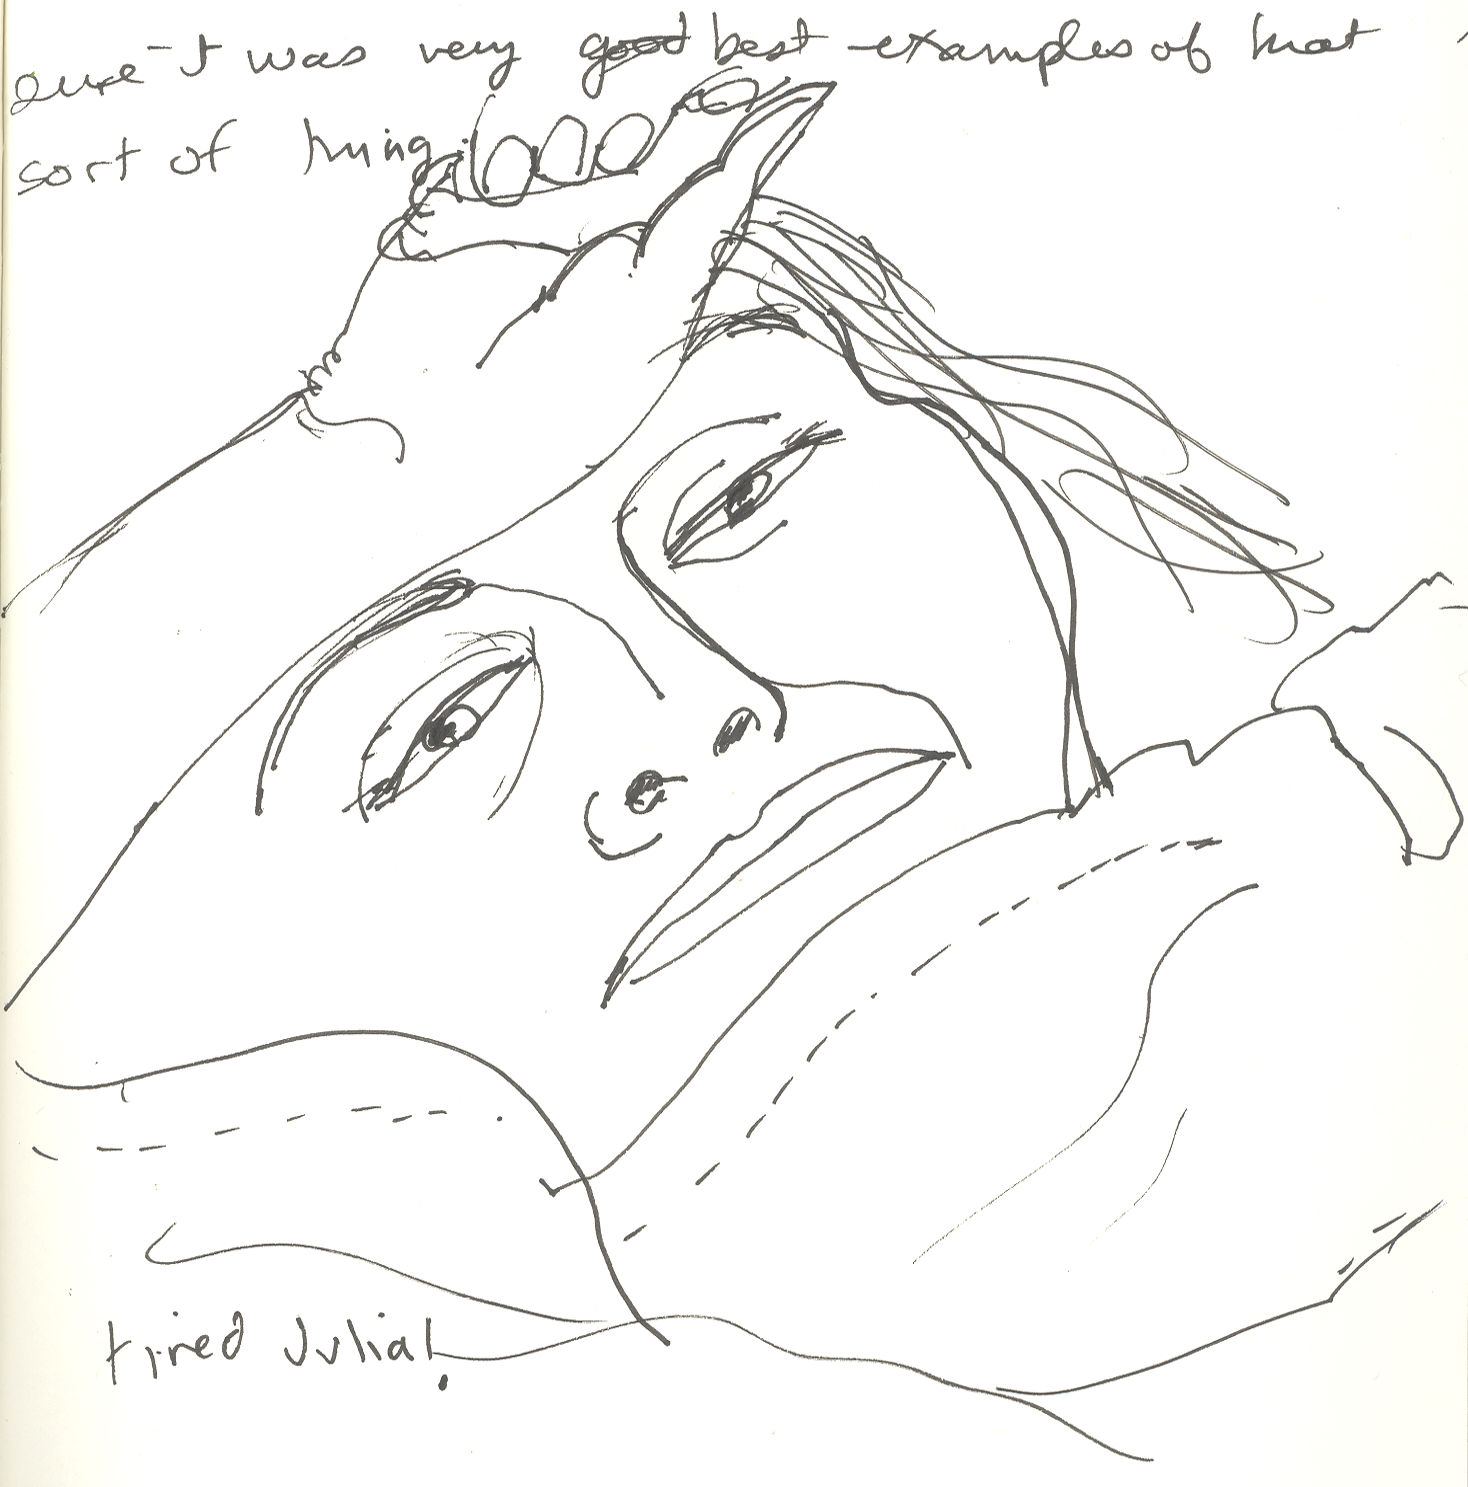 was very good best examples of that
sort of thing
tired Julia!